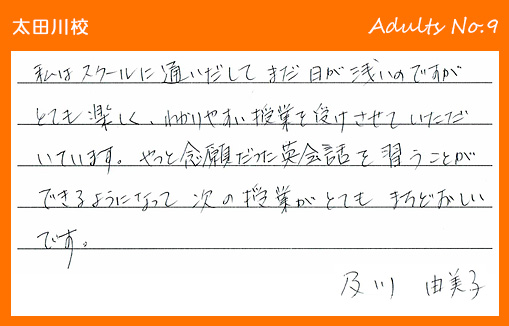 太田川校
Adults No.9
私はスクールに通いだして まだ 日が浅いのですが
とても 楽しく、わかりやすい 授業を受けさせて いただ
いています。やっと念願だった英会話を習うことが
できるようになって 次の授業が とても まちどおしい
です。
及川 由美子